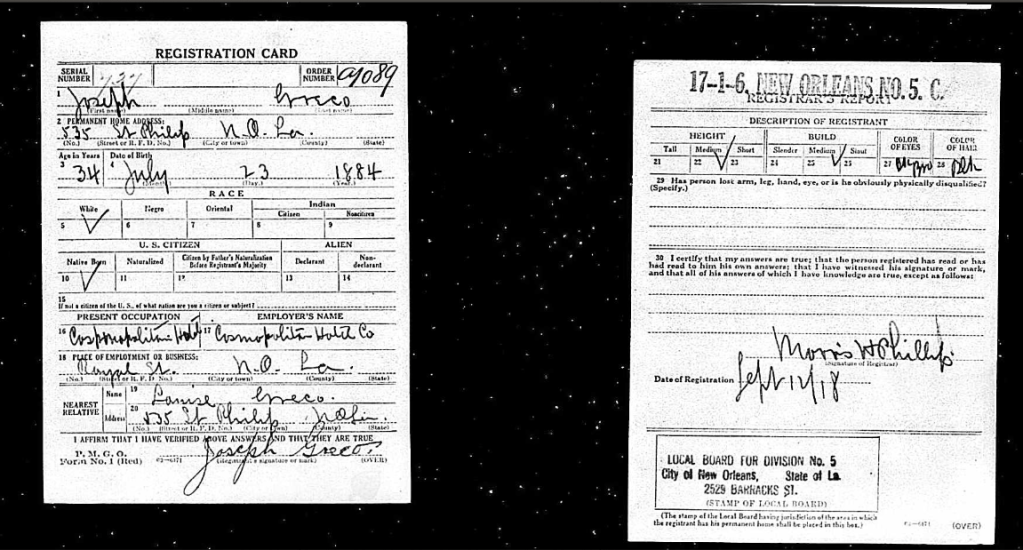 REGISTRATION CARD
SERIAL NUMBER
ORDER NUMBER
1 Joseph Greco
(First name) (Middle name) (Last name)
2 PERMANENT HOME ADDRESS:
535 St Philip N.O. La.
(No.) (Street or R. F. D. No.) (City or town) (County) (State)
Age in Years Date of Birth
3 34 4 July 23 1884
(Month.) (Day.) (Year.)
RACE
White Negro Oriental Indian
Citizen Noncitizen
5 6 7 8 9
U. S. CITIZEN ALIEN
Native Born Naturalized Citizen by Father's Naturalization Before Registrant's Majority Declarant Non-declarant
10 11 12 13 14
15
If not a citizen of the U. S., of what nation are you a citizen or subject?
PRESENT OCCUPATION EMPLOYER'S NAME
16 17 Cosmopolitan Hotel Co
18 PLACE OF EMPLOYMENT OR BUSINESS:
Royal St. N.O. La.
(No.) (Street or R. F. D. No.) (City or town) (County) (State)
NEAREST RELATIVE
Name 19 Louise Greco.
Address 20 535 St Philip
(No.) (Street or R. F. D. No.) (City or Town) (County) (State)
I AFFIRM THAT I HAVE VERIFIED ABOVE ANSWERS AND THAT THEY ARE TRUE
P. M. G. O.
Form No. 1 (Red) Joseph Greco.
(Registrant's signature or mark) (OVER)
17-1-6. NEW ORLEANS NO. 5. C.
REGISTRAR'S REPORT
DESCRIPTION OF REGISTRANT
HEIGHT BUILD COLOR OF EYES COLOR OF HAIR
Tall Medium Short Slender Medium Stout
21 22 23 24 25 27 28 Blk
29 Has person lost arm, leg, hand, eye, or is he obviously physically disqualified?
(Specify.)
30 I certify that my answers are true; that the person registered has read or has
had read to him his own answers; that I have witnessed his signature or mark,
and that all of his answers of which I have knowledge are true, except as follows:
Morris H Phillips
(Signature of Registrar)
Date of Registration Sept 12/18
LOCAL BOARD FOR DIVISION No. 5
City of New Orleans, State of La.
2529 BARRACKS ST.
(STAMP OF LOCAL BOARD)
(The stamp of the Local Board having jurisdiction of the area in which
the registrant has his permanent home shall be placed in this box.)
(OVER)